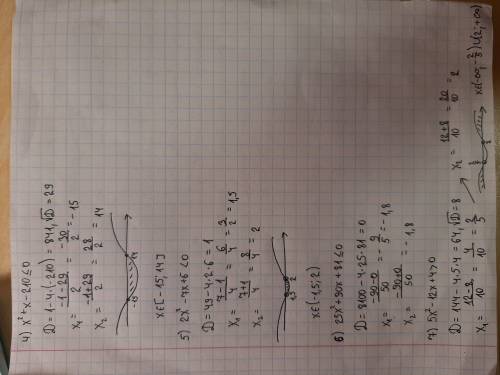 4) x²+x-210≤0
D=1-4·(-210)=841, √D=29
x₁= -1-29/2 = -30/2 = -15
x₂= -1+29/2 = 28/2 = 14
-15 14
x∈[-15;14]
5) 2x²-7x+6<0
D=49-4·2·6=1
x₁= 7-1/4 = 6/4 = 3/2 = 1,5
x₂= 7+1/4 = 8/4 = 2
1,5 2
x∈(-1,5;2)
6) 25x²+90x+81≤0
D=8100-4·25·81=0
x₁= -90-0/50 = -9/5 = -1,8
x₂= -90+0/50 = -1,8
7) 5x²-12x+4>0
D=144-4·5·4=64, √D=8
x₁= 12-8/10 = 4/10 = 2/5
x₂= 12+8/10 = 20/10 = 2
x∈(-∞;-2/5)∪(2;+∞)